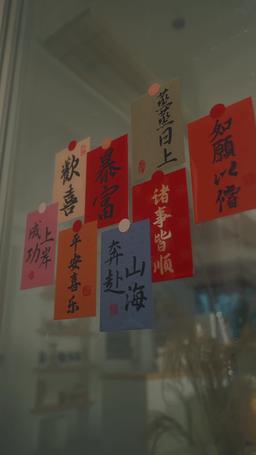 歡喜
暴富
蒸蒸日上
如願以償
上岸
成功
平安喜乐
奔赴
山海
诸事皆顺